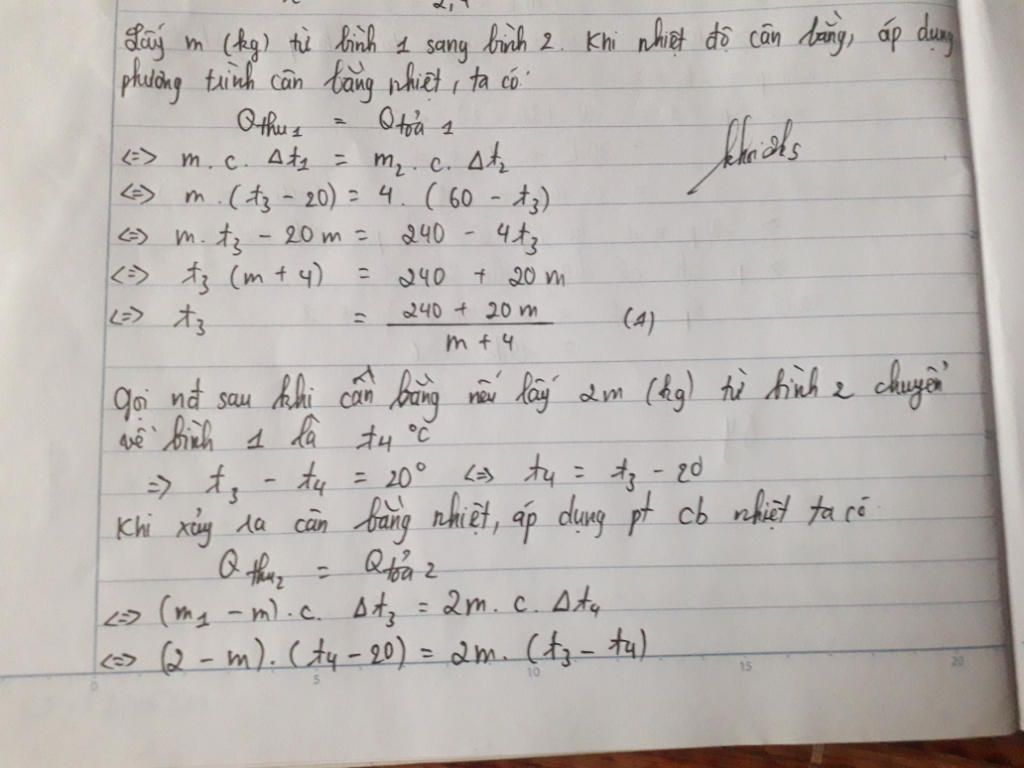 2,4
Lấy m (kg) từ bình 1 sang bình 2. Khi nhiệt độ cân bằng, áp dụng
phương trình cân bằng nhiệt, ta có:
Q thu 1 = Q tỏa 1
<=> m. c. Δt₁ = m₂. c. Δt₂
<=> m. (t₃ - 20) = 4. (60 - t₃)
<=> m. t₃ - 20m = 240 - 4t₃
<=> t₃ (m + 4) = 240 + 20m
<=> t₃ = (240 + 20m) / (m + 4) (A)
Gọi nđ sau khi cân bằng nếu lấy 2m (kg) từ bình 2 chuyển
về bình 1 là t₄ °C
=> t₃ - t₄ = 20° <=> t₄ = t₃ - 20
Khi xảy ra cân bằng nhiệt, áp dụng pt cb nhiệt ta có
Q thu 2 = Q tỏa 2
<=> (m₁ - m). c. Δt₃ = 2m. c. Δt₄
<=> (2 - m). (t₄ - 20) = 2m. (t₃ - t₄)
0 5 10 15 20